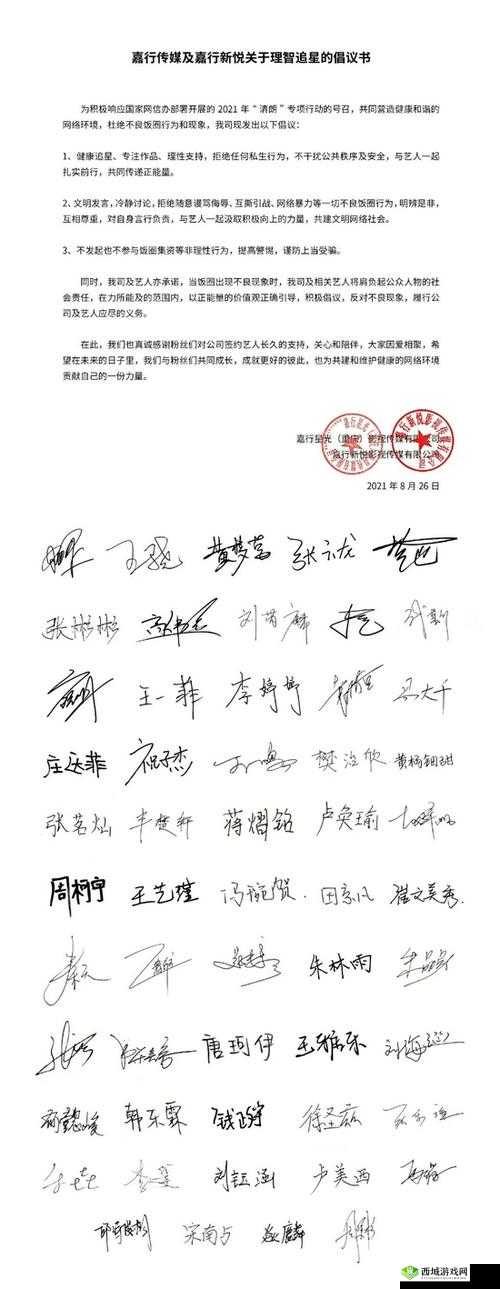 嘉行传媒及嘉行新悦关于理智追星的倡议书
为积极响应国家网信办部署开展的 2021 年“清朗”专项行动的号召，共同营造健康和谐的
网络环境，杜绝不良饭圈行为和现象，我司现发出以下倡议：
1、健康追星、专注作品、理性支持，拒绝任何私生行为，不干扰公共秩序及安全，与艺人一起
扎实前行，共同传递正能量。
2、文明发言，冷静讨论，拒绝随意谩骂侮辱、互撕引战、网络暴力等一切不良饭圈行为，明辨是非，
互相尊重，对自身言行负责，与艺人一起汲取积极向上的力量，共建文明网络社会。
3、不发起也不参与饭圈集资等非理性行为，提高警惕，谨防上当受骗。
同时，我司及艺人亦承诺，当饭圈出现不良现象时，我司及相关艺人将肩负起公众人物的社
会责任，在力所能及的范围内，以正能量的价值观正确引导，积极倡议，反对不良现象，履行公
司及艺人应尽的义务。
在此，我们也真诚感谢粉丝们对公司签约艺人长久的支持，关心和陪伴，大家因爱相聚，希
望在未来的日子里，我们与粉丝们共同成长，成就更好的彼此，也为共建和维护健康的网络环境
贡献自己的一份力量。
嘉行星光（重庆）影视传媒有限公司
嘉行新悦影视传媒有限公司
2021 年 8 月 26 日
王骁 黄梦莹 张云龙
张彬彬 刘芮麟
王一菲 李婷婷 马大千
庄达菲 祝子杰 樊治欣 黄杨钿甜
张茗灿 丰楚轩 蒋熠铭 卢奂瑜
周柯宇 王艺瑾 冯琬贺 田京凡 崔文美秀
朱林雨
唐珂伊 王雅乐 刘海
韩东霖 钱正宇
刘钰涵 卢美西
宋南占 麟
西城游戏网